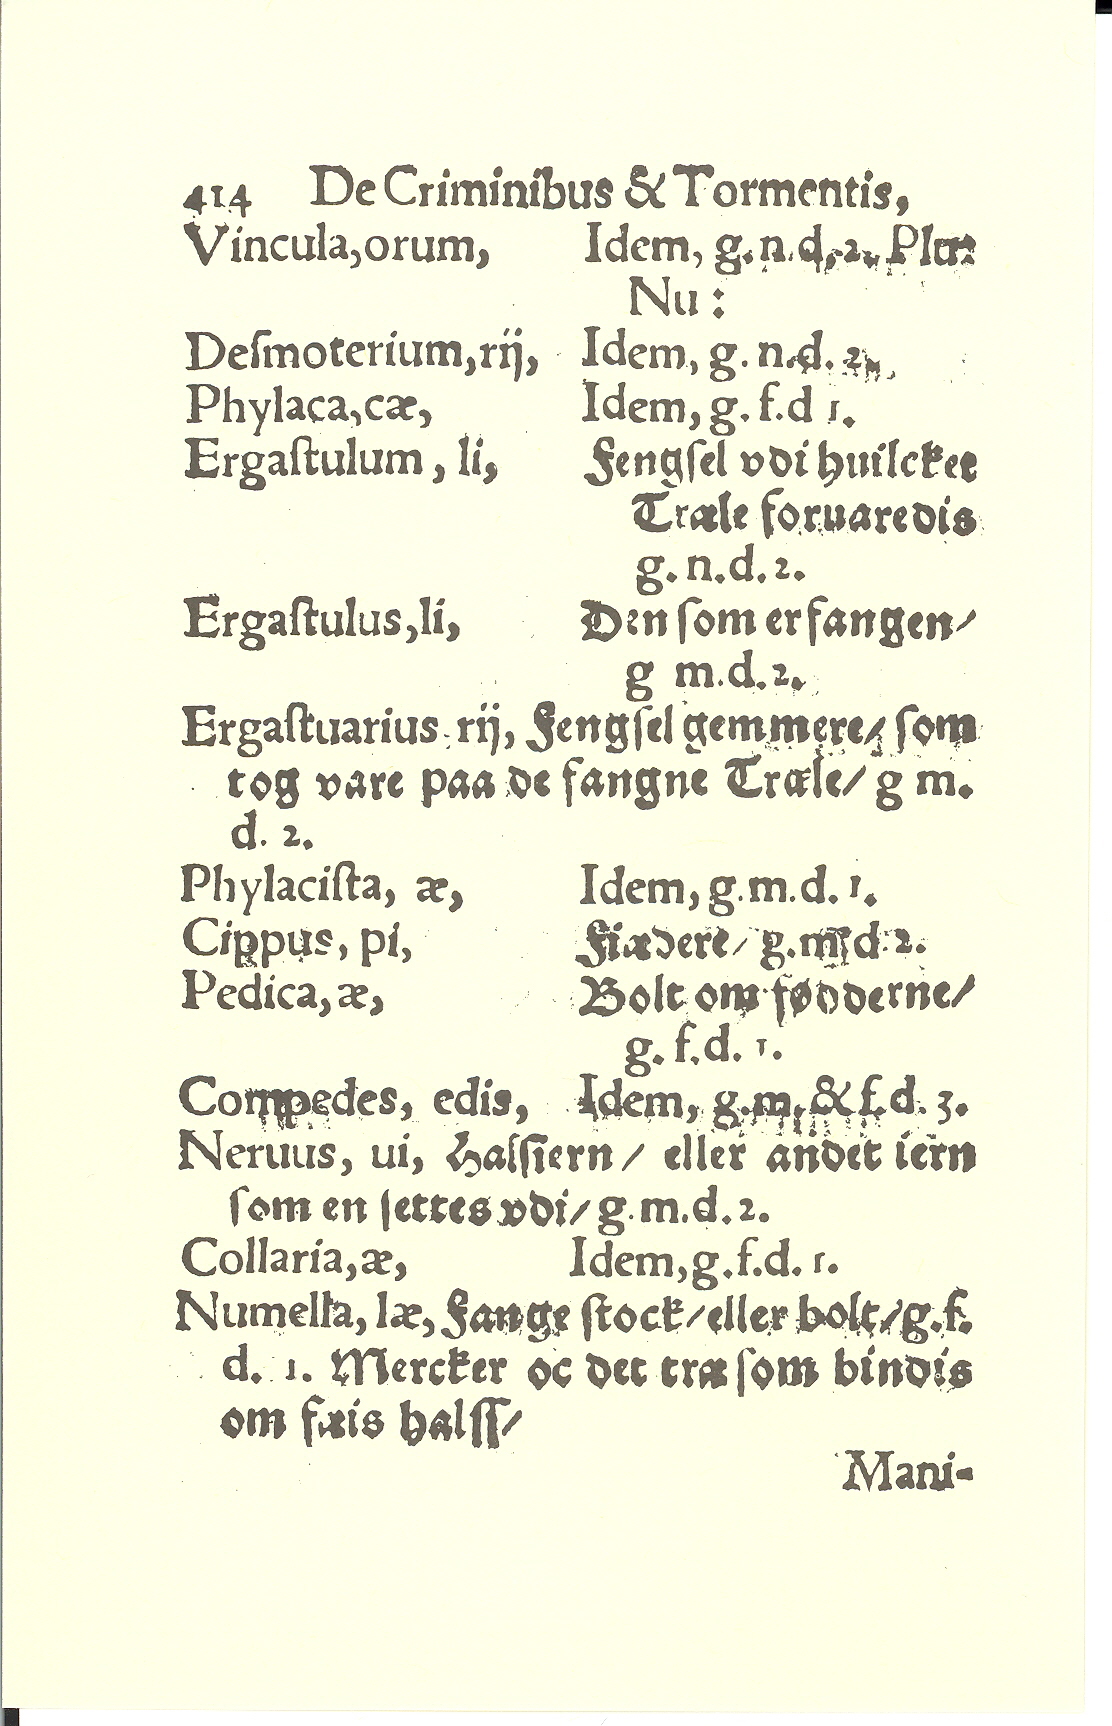 414 De Criminibus & Tormentis,
Vincula,orum, Idem, g.n.d.2. Plur:
Nu:
Deſmoterium,rij, Idem, g. n.d. 2.
Phylaca,cæ, Idem, g. f.d 1.
Ergaſtulum, li, Fengſel vdi huilcket
Træle foruaredis
g. n.d.2.
Ergaſtulus,li, Den ſom er fangen/
g m.d.2.
Ergaſtuarius.rij, Fengſel gemmere/ ſom
tog vare paa de fangne Træle/ g m.
d. 2.
Phylaciſta, æ, Idem, g.m.d. 1.
Cippus, pi, Fiædere/ g.m d 2.
Pedica,æ, Bolt om fødderne/
g. f.d. 1.
Compedes, edis, Idem, g.m.& f.d. 3.
Neruus, ui, Halſſiern/ eller andet iern
ſom en ſettes vdi/ g.m.d.2.
Collaria,æ, Idem,g.f.d. 1.
Numella, læ, Fange ſtock/eller bolt/g.f.
d. 1. Mercker oc det træ ſom bindis
om fæis halſſ/
Mani-